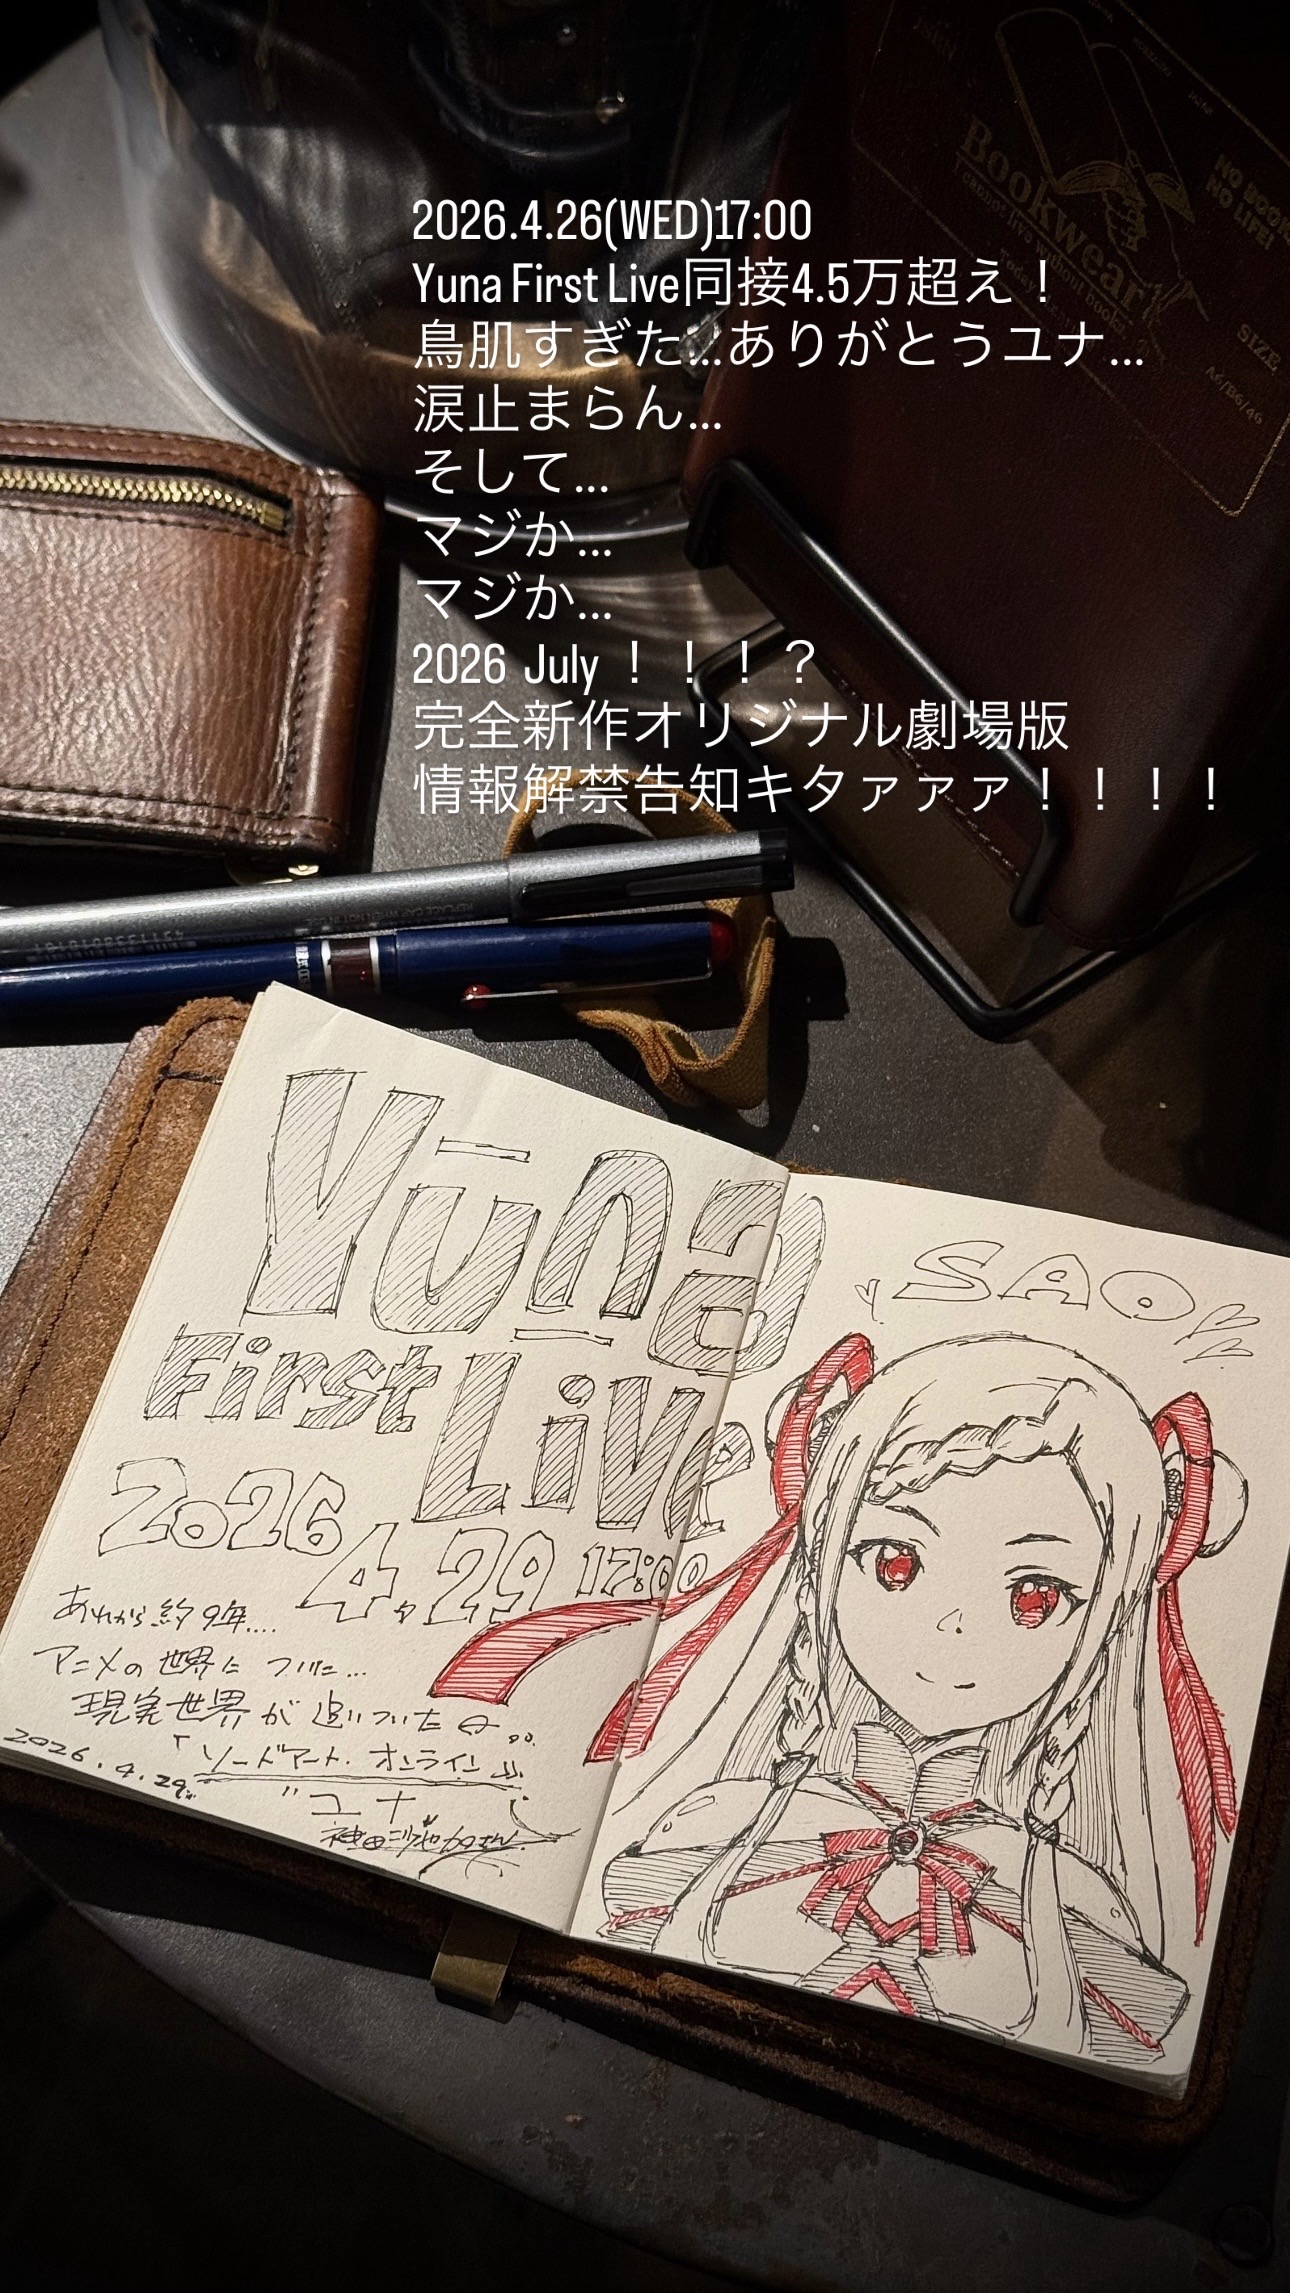 2026.4.26(WED)17:00
Yuna First Live同接4.5万超え！
鳥肌すぎた...ありがとうユナ...
涙止まらん...
そして...
マジか...
マジか...
2026 July！！！？
完全新作オリジナル劇場版
情報解禁告知キタァァァ！！！！
Bookwear
cannot live without books
NO BOOK
NO LIFE!
SIZE
A6/B6/46
REPLACE CAP WHEN NOT IN USE
Yuna
First Live
2026
4.29 17:00
あれから約9年....
アニメの世界に ついに...
現実世界が 追いついた日...
「ソードアート・オンライン」
"ユナ"
神田沙也加さん
2026.4.29
SAO